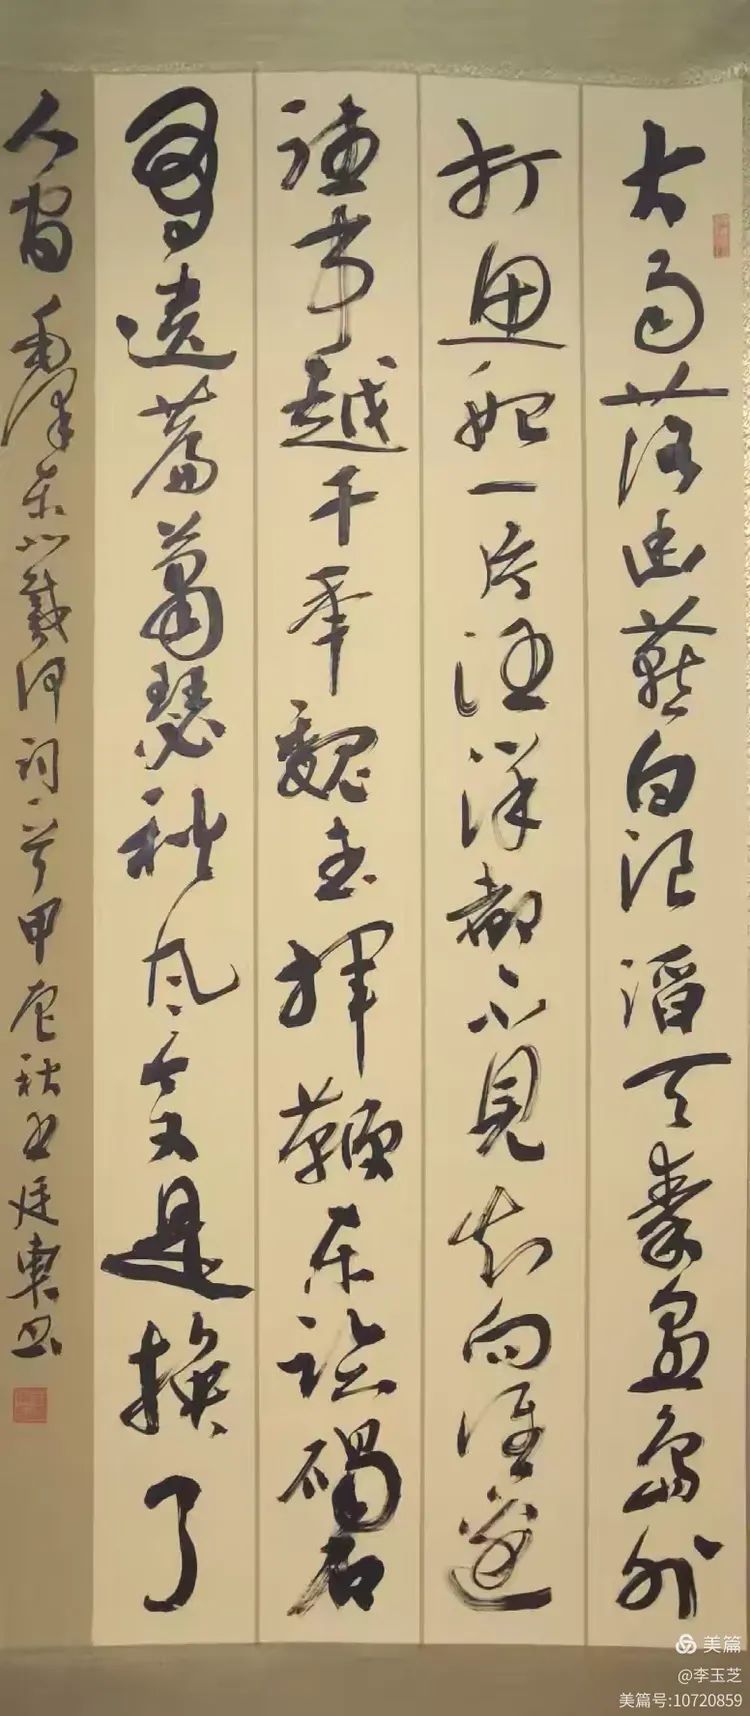 大雨落幽燕白浪滔天秦皇島外
打魚船一片汪洋都不見知向誰邊
往事越千年魏武揮鞭东臨碣石
有遺篇蕭瑟秋风今又是換了
人间 毛澤东北戴河詞一首甲辰秋王廷東书
美篇
@李玉芝
美篇号:10720859